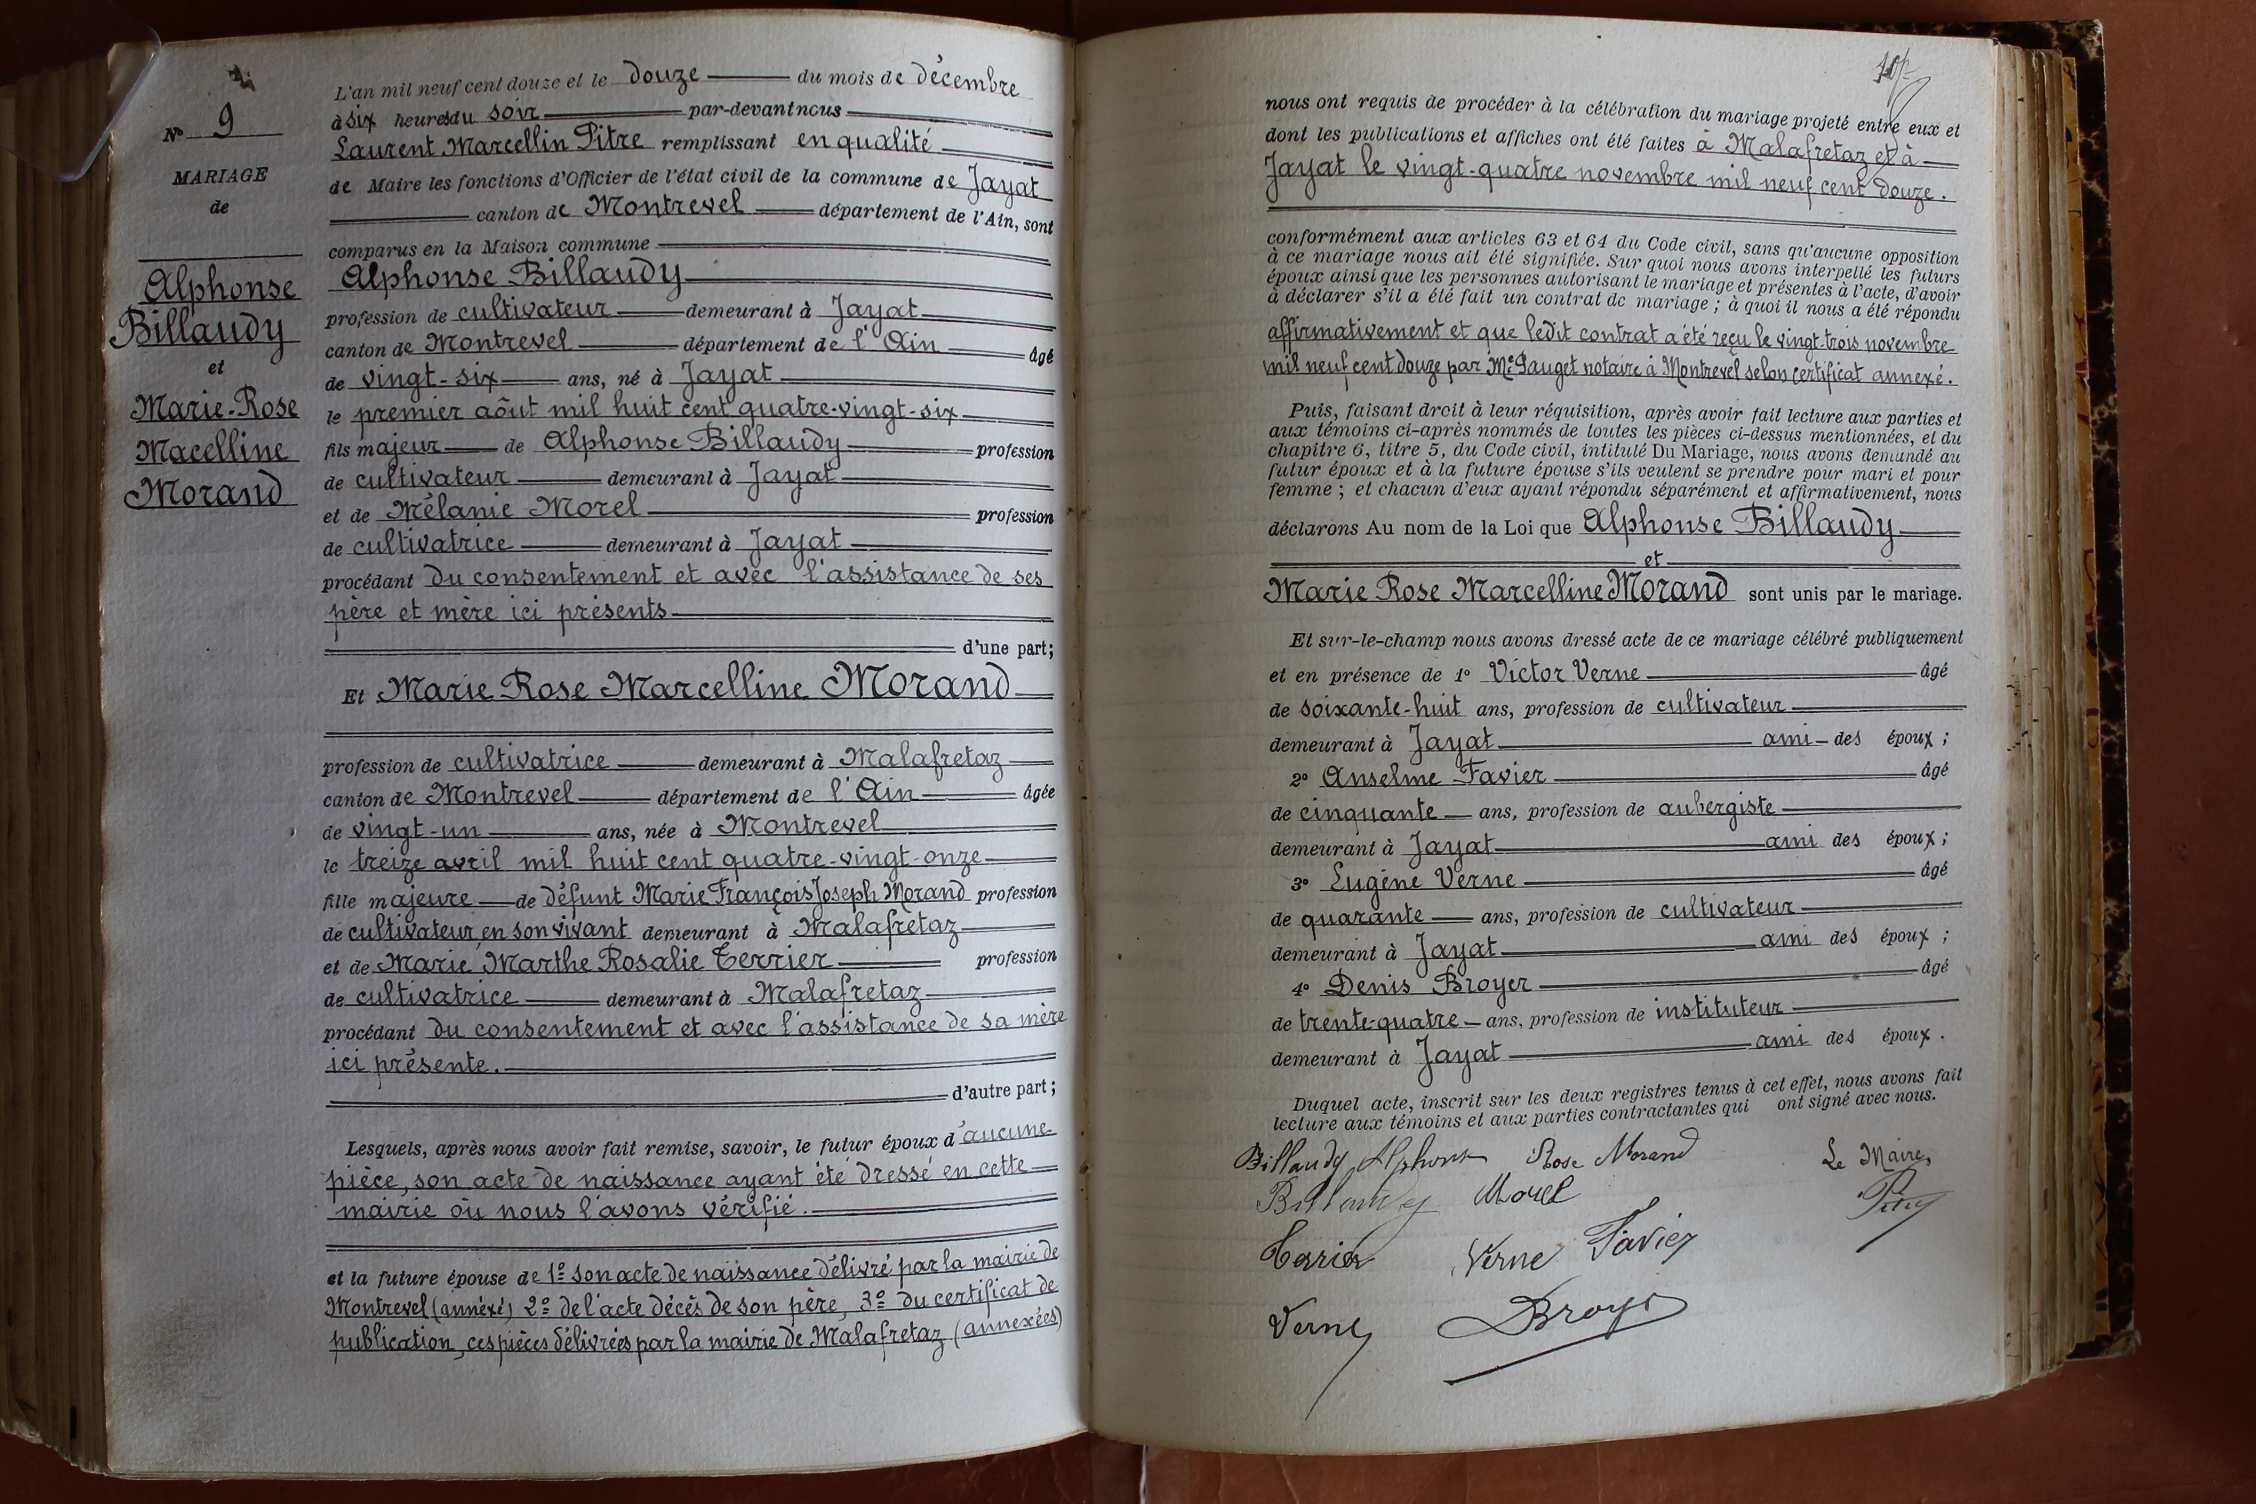 N° 9
MARIAGE
de
Alphonse
Billaudy
et
Marie-Rose
Macelline
Morand
L'an mil neuf cent douze et le douze du mois de décembre
à six heures du soir par-devant nous
Laurent Marcellin Pitre remplissant en qualité
de Maire les fonctions d'Officier de l'état civil de la commune de Jayat
canton de Montrevel département de l'Ain, sont
comparus en la Maison commune
Alphonse Billaudy
profession de cultivateur demeurant à Jayat
canton de Montrevel département de l'Ain âgé
de vingt-six ans, né à Jayat
le premier août mil huit cent quatre-vingt-six
fils majeur de Alphonse Billaudy profession
de cultivateur demeurant à Jayat
et de Mélanie Morel profession
de cultivatrice demeurant à Jayat
procédant du consentement et avec l'assistance de ses
père et mère ici présents
d'une part;
Et Marie Rose Marcelline Morand
profession de cultivatrice demeurant à Malafretaz
canton de Montrevel département de l'Ain âgée
de vingt-un ans, née à Montrevel
le treize avril mil huit cent quatre-vingt-onze
fille majeure de défunt Marie François Joseph Morand profession
de cultivateur en son vivant demeurant à Malafrètaz
et de Marie Marthe Rosalie Terrier profession
de cultivatrice demeurant à Malafretaz
procédant du consentement et avec l'assistance de sa mère
ici présente.
d'autre part;
Lesquels, après nous avoir fait remise, savoir, le futur époux d'aucune
pièce, son acte de naissance ayant été dressé en cette
mairie où nous l'avons vérifié.
et la future épouse de 1º son acte de naissance délivré par la mairie de
Montrevel (annéxé) 2º de l'acte décès de son père, 3º du certificat de
publication, ces pièces délivrées par la mairie de Malafretaz (annexées)
nous ont requis de procéder à la célébration du mariage projeté entre eux et
dont les publications et affiches ont été faites à Malafretaz et à
Jayat le vingt-quatre novembre mil neuf cent douze.
conformément aux articles 63 et 64 du Code civil, sans qu'aucune opposition
à ce mariage nous ait été signifiée. Sur quoi nous avons interpellé les futurs
époux ainsi que les personnes autorisant le mariage et présentes à l'acte, d'avoir
à déclarer s'il a été fait un contrat de mariage ; à quoi il nous a été répondu
affirmativement et que ledit contrat a été reçu le vingt-trois novembre
mil neuf cent douze par Me Pauget notaire à Montrevel selon certificat annexé.
Puis, faisant droit à leur réquisition, après avoir fait lecture aux parties et
aux témoins ci-après nommés de toutes les pièces ci-dessus mentionnées, et du
chapitre 6, titre 5, du Code civil, intitulé Du Mariage, nous avons demandé au
futur époux et à la future épouse s'ils veulent se prendre pour mari et pour
femme ; et chacun d'eux ayant répondu séparément et affirmativement, nous
déclarons Au nom de la Loi que Alphonse Billaudy
et
Marie Rose Marcelline Morand sont unis par le mariage.
Et sur-le-champ nous avons dressé acte de ce mariage célébré publiquement
et en présence de 1º Victor Verne âgé
de soixante-huit ans, profession de cultivateur
demeurant à Jayat ami des époux ;
2º Anselme Favier âgé
de cinquante ans, profession de aubergiste
demeurant à Jayat ami des époux ;
3º Eugène Verne âgé
de quarante ans, profession de cultivateur
demeurant à Jayat ami des époux ;
4º Denis Broyer âgé
de trente-quatre ans, profession de instituteur
demeurant à Jayat ami des époux.
Duquel acte, inscrit sur les deux registres tenus à cet effet, nous avons fait
lecture aux témoins et aux parties contractantes qui ont signé avec nous.
Billaudy Alphonse Rose Morand Le Maire,
Billaudy Morel Pitre
Terrier Verne Favier
Verne Broyer